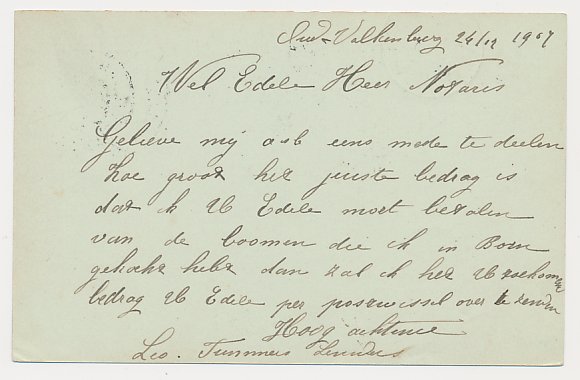 Oud-Valkenburg 24/12 1907
Wel Edele Heer Notaris
Gelieve mij asb eens mede te deelen
hoe groot het juiste bedrag is
dat ik U Edele moet betalen
van de boomen die ik in Born
gekocht hebt dan zal ik het U toekomen
bedrag U Edele per postwissel over te zenden
Hoog achtend
Leo. Timmers